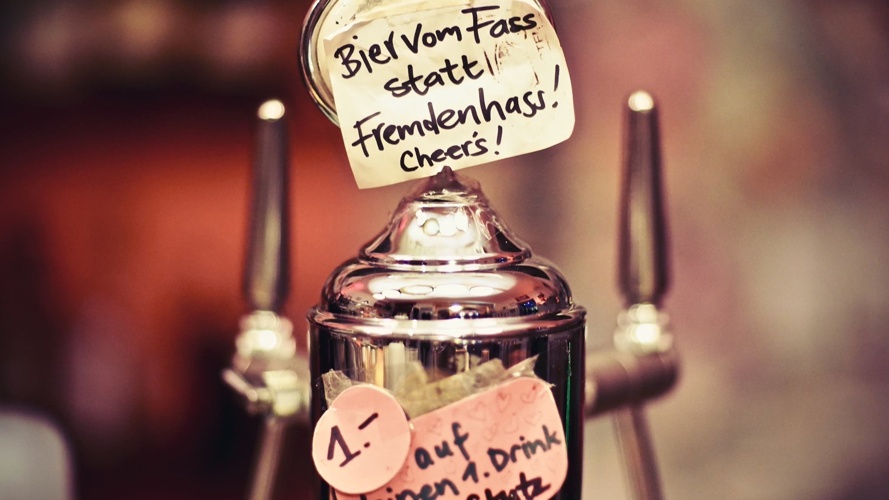 Bier vom Fass
statt
Fremdenhass!
Cheer's!
1.-
auf
deinen 1. Drink